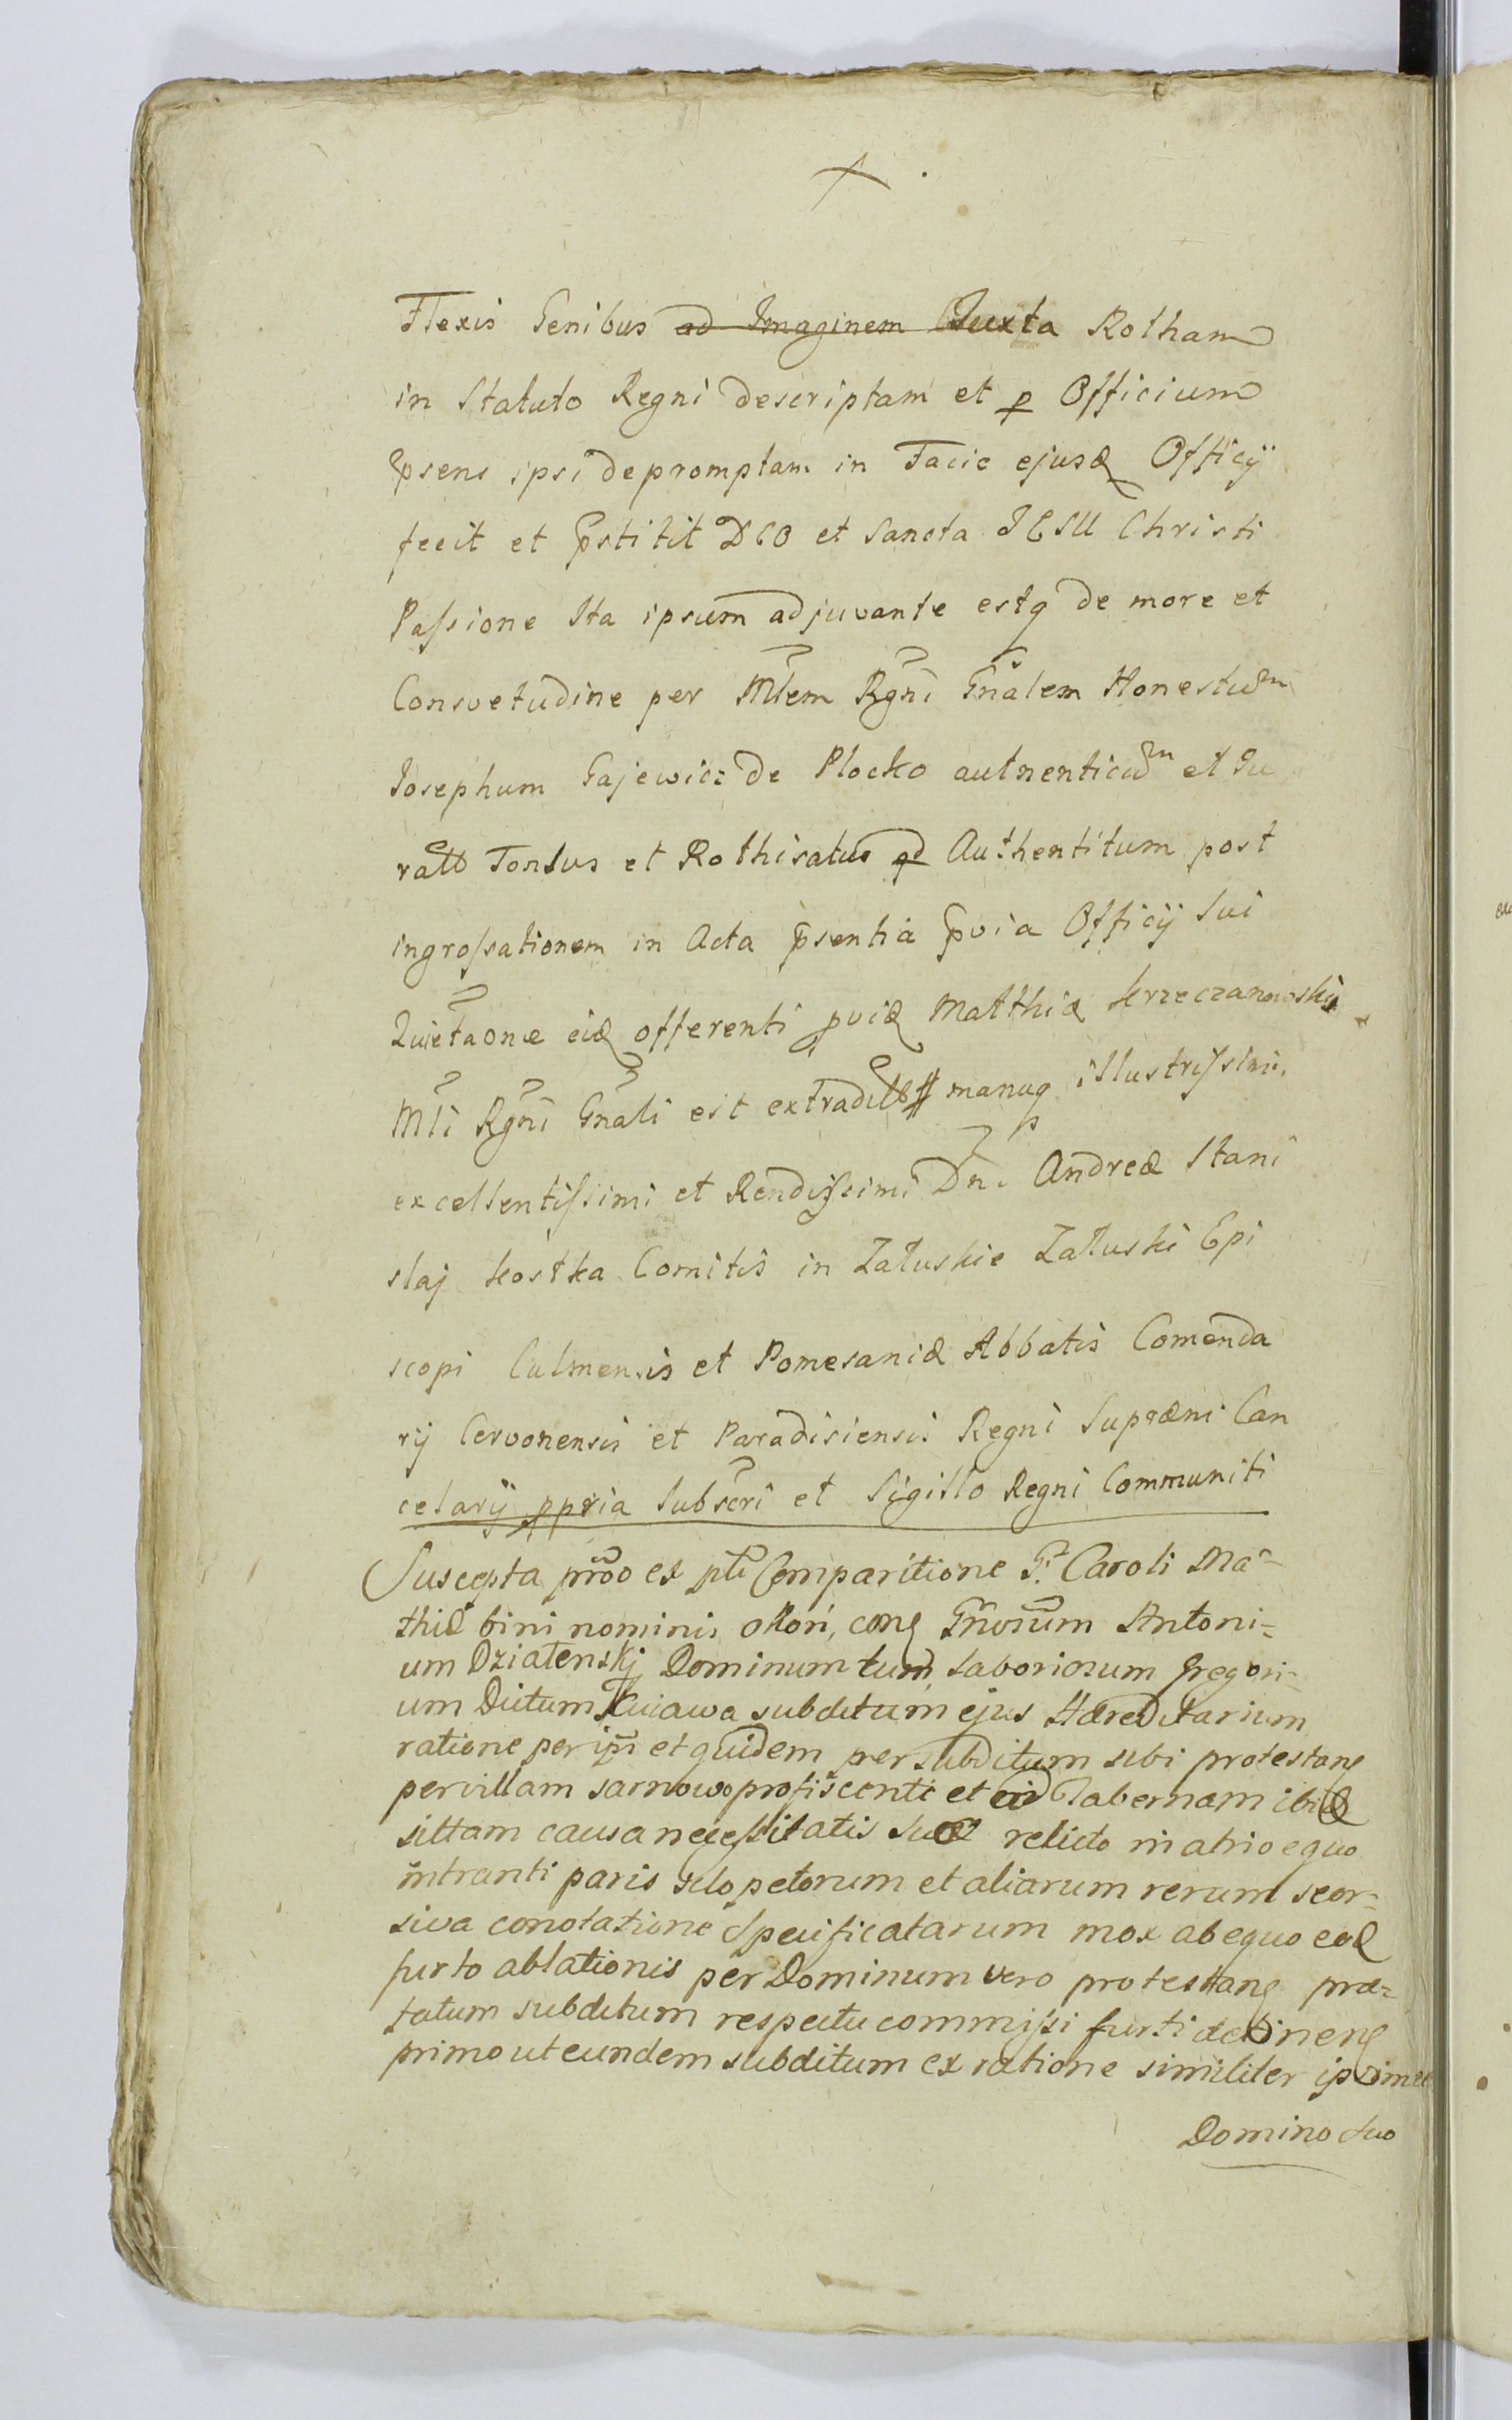 Flexis Genibus ad Imaginem Juxta Rotham
in Statuto Regni descriptam et p Officium
psens ipsi depromptam in Facie ejusq Officij
fecit et pstitit DEO et Sancta JESU Christi
Passione Ita ipsum adjuvante estq de more et
Consvetudine per Mlem Rgni Gnalem Honestum
Josephum Gajewicz de Plocko authenticum et Ju
rato Tonsus et Rothisatus qd Authentitum post
ingrossationem in Acta psentia pvia Officij Sui
Quietaone eidq offerenti pviæ Matthiæ Krzeczanowski
Mli Rgni Gnali est extradit manuq illustrissimi,
excellentissimi et Rendissimi Dni Andreæ Stani
slaj Kostka Comitis in Załuskie Załuski Epi
scopi Culmensis et Pomesaniæ Abbatis Comenda
rij Cervonensis et Paradisiensis Regni Supræmi Can
celarij ppria Subscri et Sigillo Regni Communiti
Suscepta proo ex pti Comparitione G. Caroli Ma-
thiæ bini nominis conq Gnrosum Antoni-
um Działenskj Dominum tum Laboriosum Gregori-
um Dictum Kuiawa subditum ejus Hæreditarium
ratione per ipm et quidem per subditum sibi protestanq
per villam sarnowo profiscenti et ad Tabernam ibidq
sittam causa necessitatis suæ relicto in atrio equo
intranti paris sclopetorum et aliarum rerum seor-
siva conotatione Specificatarum mox ab equo eodq
furto ablationis per Dominum vero protestanq præ-
fatum subditum respectu commissi furti detinenq
primo ut eundem subditum ex ratione similiter ipsimet
Domino suo